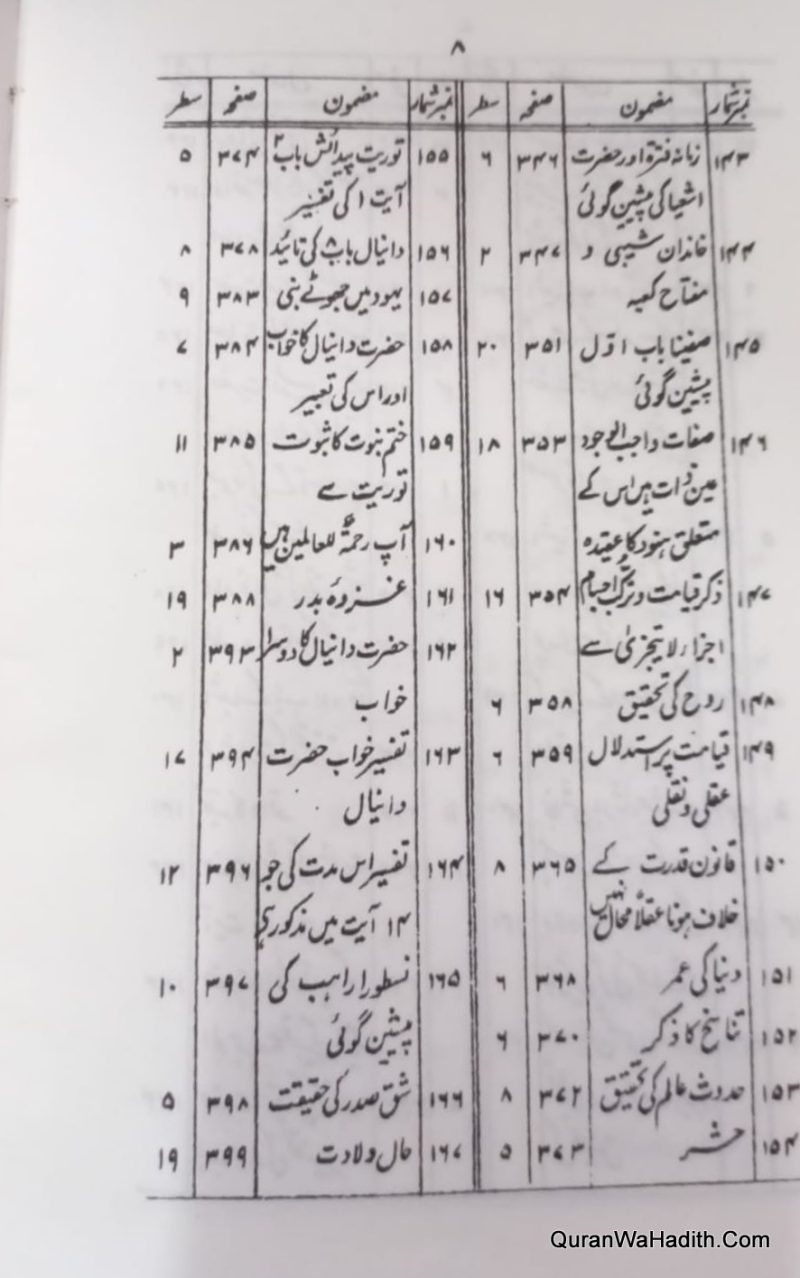 ۸
نمبر شمار مضمون صفحہ سطر
۱۴۳ زمانہ فترۃ اور حضرت ۳۴۶ ۶
اشعیا کی پیشین گوئی
۱۴۴ خاندان شیبی و ۳۴۷ ۲
مفتاح کعبہ
۱۴۵ صفینا باب اوّل ۳۵۱ ۲۰
پیشین گوئی
۱۴۶ صفات واجب الوجود ۳۵۳ ۱۸
عین ذات ہیں اس کے
متعلق ہنود کا عقیدہ
۱۴۷ ذکر قیامت و ترکب اجسام ۳۵۴ ۱۶
اجزاء لا یتجزیٰ سے
۱۴۸ روح کی تحقیق ۳۵۸ ۶
۱۴۹ قیامت پر استدلال ۳۵۹ ۶
عقلی و نقلی
۱۵۰ قانون قدرت کے ۳۶۵ ۸
خلاف ہونا عقلاً محال نہیں
۱۵۱ دنیا کی عمر ۳۶۸ ۶
۱۵۲ تناسخ کا ذکر ۳۷۰ ۶
۱۵۳ حدوث عالم کی تحقیق ۳۷۲ ۸
۱۵۴ حشر ۳۷۳ ۵
نمبر شمار مضمون صفحہ سطر
۱۵۵ توریت پیدائش باب ۲ ۳۷۴ ۵
آیت ۱ کی تفسیر
۱۵۶ دانیال باب ۸ کی تائید ۳۷۸ ۸
۱۵۷ یہود میں جھوٹے نبی ۳۸۳ ۹
۱۵۸ حضرت دانیال کا خواب ۳۸۴ ۷
اور اس کی تعبیر
۱۵۹ ختم نبوت کا ثبوت ۳۸۵ ۱۱
توریت سے
۱۶۰ آپ رحمۃ للعالمین ہیں ۳۸۶ ۳
۱۶۱ غزوۂ بدر ۳۸۸ ۱۹
۱۶۲ حضرت دانیال کا دوسرا ۳۹۳ ۲
خواب
۱۶۳ تفسیر خواب حضرت ۳۹۴ ۱۷
دانیال
۱۶۴ تفسیر اس مدت کی جو ۳۹۶ ۱۲
۱۴ آیت میں مذکور ہے
۱۶۵ نسطورا راہب کی ۳۹۷ ۱۰
پیشین گوئی
۱۶۶ شق صدر کی حقیقت ۳۹۸ ۵
۱۶۷ حال ولادت ۳۹۹ ۱۹
QuranWaHadith.Com